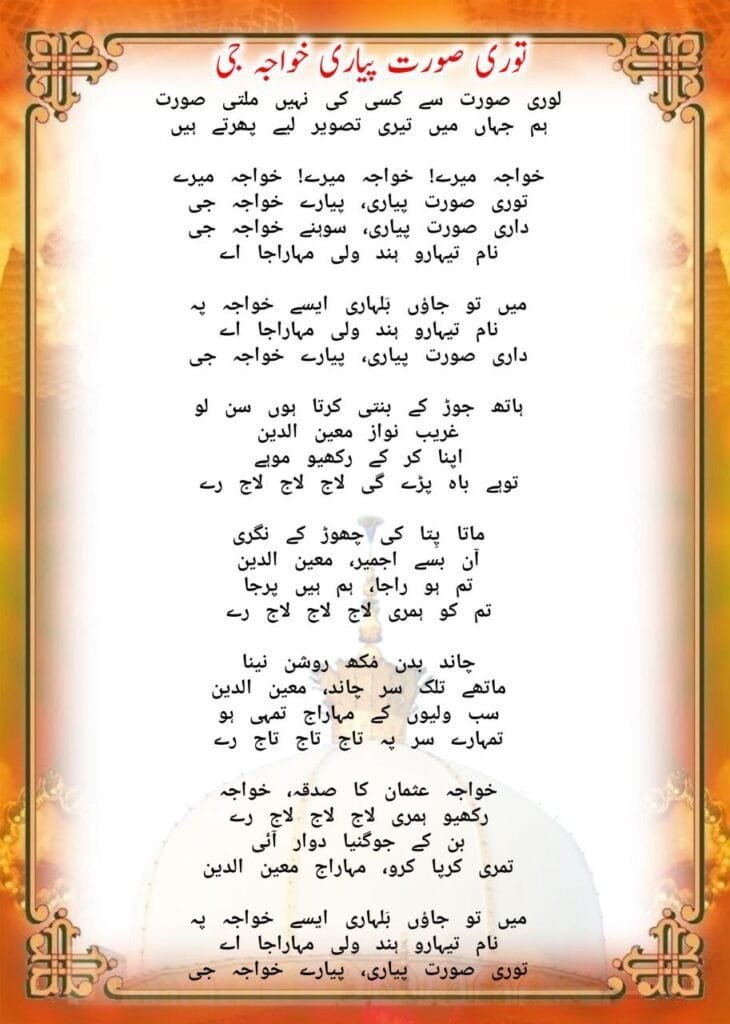 توری صورت پیاری خواجہ جی
لوری صورت سے کسی کی نہیں ملتی صورت
ہم جہاں میں تیری تصویر لیے پھرتے ہیں
خواجہ میرے! خواجہ میرے! خواجہ میرے
توری صورت پیاری، پیارے خواجہ جی
داری صورت پیاری، سوہنے خواجہ جی
نام تیہارو ہند ولی مہاراجا اے
میں تو جاؤں بَلہاری ایسے خواجہ پہ
نام تیہارو ہند ولی مہاراجا اے
داری صورت پیاری، پیارے خواجہ جی
ہاتھ جوڑ کے بنتی کرتا ہوں سن لو
غریب نواز معین الدین
اپنا کر کے رکھیو موہے
توہے باہ پڑے گی لاج لاج لاج رے
ماتا پِتا کی چھوڑ کے نگری
آن بسے اجمیر، معین الدین
تم ہو راجا، ہم ہیں پرجا
تم کو ہمری لاج لاج لاج رے
چاند بدن مُکھ روشن نینا
ماتھے تلک سر چاند، معین الدین
سب ولیوں کے مہاراج تمہی ہو
تمہارے سر پہ تاج تاج تاج رے
خواجہ عثمان کا صدقہ، خواجہ
رکھیو ہمری لاج لاج لاج رے
بن کے جوگنیا دوار آئی
تمری کرپا کرو، مہاراج معین الدین
میں تو جاؤں بَلہاری ایسے خواجہ پہ
نام تیہارو ہند ولی مہاراجا اے
توری صورت پیاری، پیارے خواجہ جی